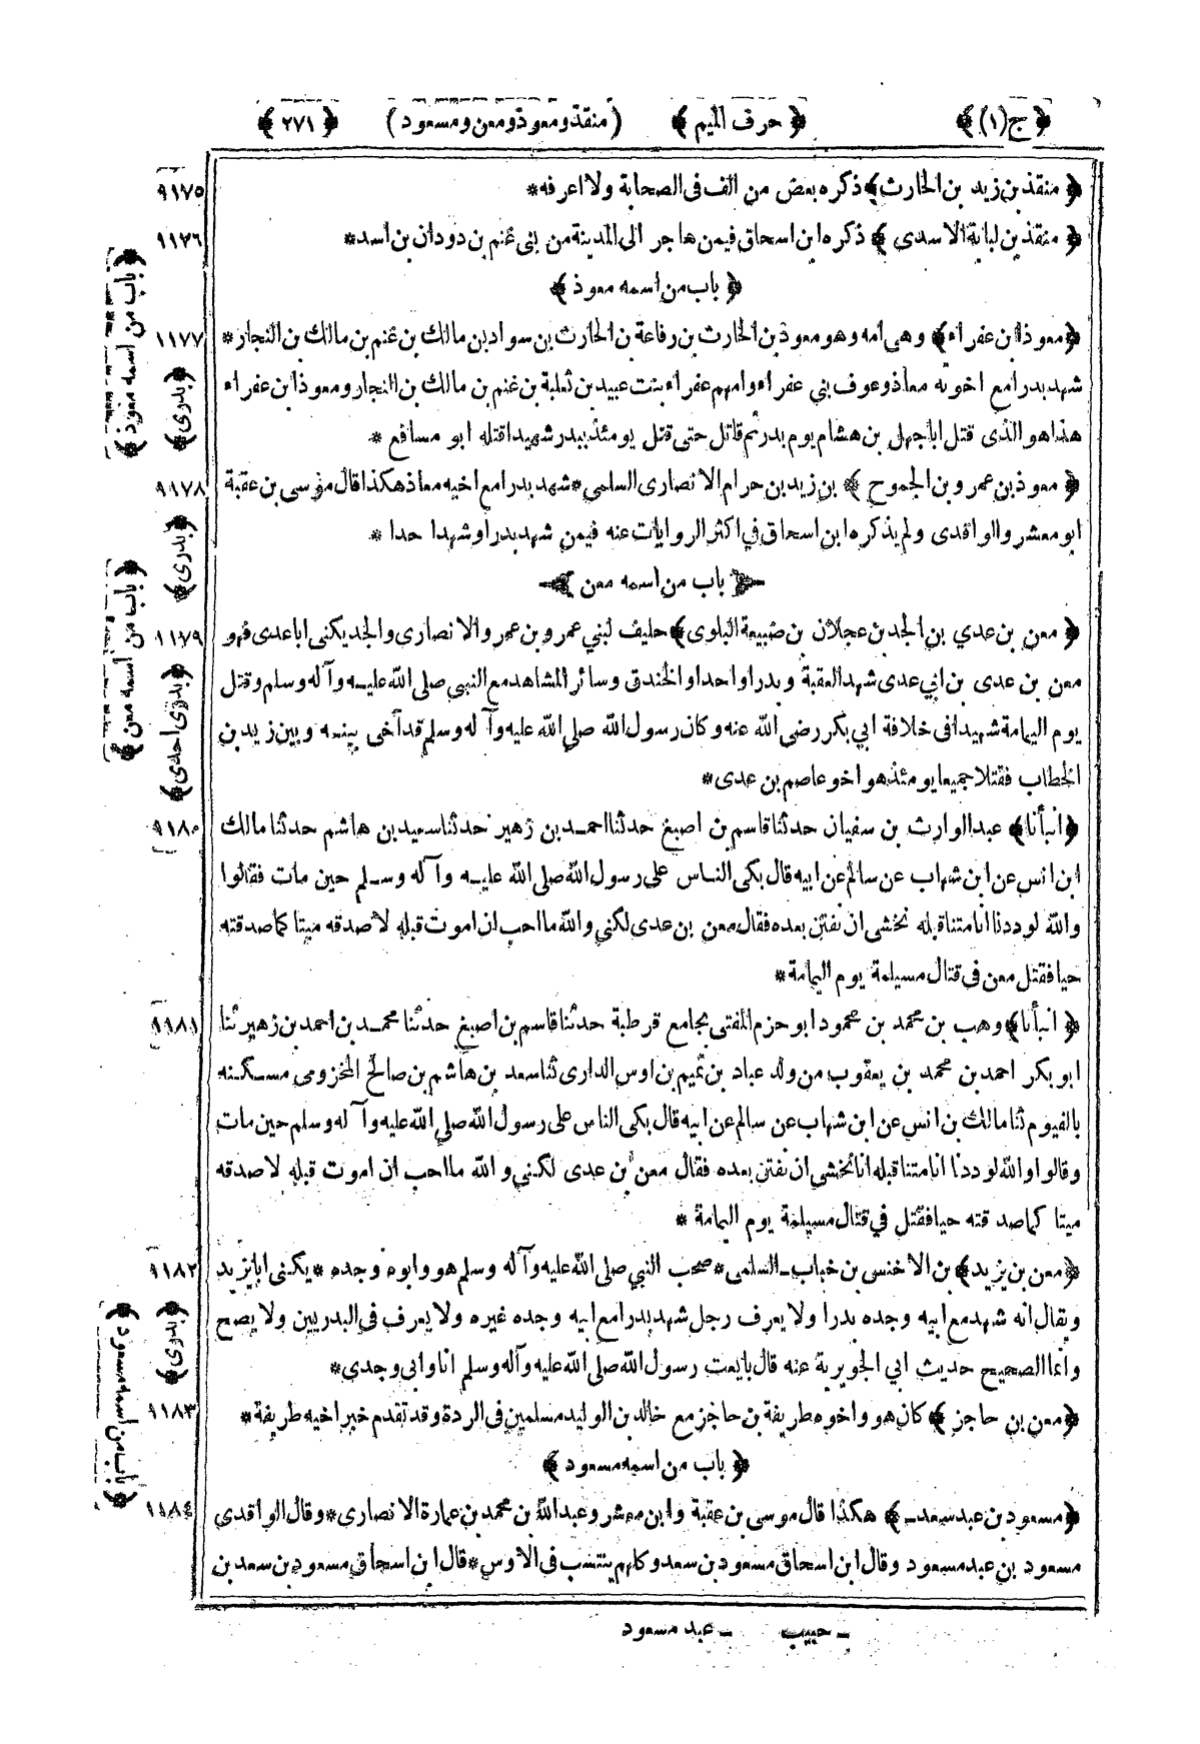 ﴿ج(١)﴾ ﴿حرف الميم﴾ (منقذ ومعوذ ومعن ومسعود) ﴿٢٧١﴾
﴿منقذ بن زيد بن الحارث﴾ ذكره بعض من الف فى الصحابة ولا اعرفه* ٩١٧٥
﴿منقذ بن لبابة الاسدى﴾ ذكره ابن اسحاق فيمن هاجر الى المدينة من بنى غنم بن دودان بن اسد* ٩١٧٦
﴿باب من اسمه معوذ﴾
﴿باب من اسمه معوذ﴾
﴿معوذ ابن عفراء﴾ وهى امه وهو معوذ بن الحارث بن رفاعة بن الحارث بن سواد بن مالك بن غنم بن مالك بن النجار* ٩١٧٧
﴿بدرى﴾
شهد بدرا مع اخوته معاذ وعوف بني عفراء وامهم عفراء بنت عبيد بن ثعلبة بن غنم بن مالك بن النجار ومعوذ ابن عفراء
هذا هو الذى قتل ابا جهل بن هشام يوم بدر ثم قاتل حتى قتل يومئذ ببدر شهيدا قتله ابو مسافع *
﴿معوذ بن عمرو بن الجموح﴾ بن زيد بن حرام الانصارى السلمي* شهد بدرا مع اخيه معاذ هكذا قال موسى بن عقبة ٩١٧٨
﴿بدرى﴾
ابو معشر والواقدى ولم يذكره ابن اسحاق في اكثر الروايات عنه فيمن شهد بدرا وشهد احدا *
باب من اسمه معن
﴿باب من اسمه معن﴾
﴿معن بن عدي بن الجد بن عجلان بن ضبيعة البلوى﴾ حليف لبني عمرو بن عمرو الانصارى والجد يكنى ابا عدى فهو ٩١٧٩
﴿بدرى احدى﴾
معن بن عدى بن ابي عدى شهد العقبة وبدرا واحدا والخندق وسائر المشاهد مع النبي صلى الله عليه وآله وسلم وقتل
يوم اليمامة شهيدا فى خلافة ابي بكر رضى الله عنه وكان رسول الله صلى الله عليه وآله وسلم قد آخى بينه وبين زيد بن
الخطاب فقتلا جميعا يومئذ هو اخو عاصم بن عدى*
﴿انبأنا﴾ عبد الوارث بن سفيان حدثنا قاسم بن اصبغ حدثنا احمد بن زهير حدثنا سعيد بن هاشم حدثنا مالك ٩١٨٠
ابن انس عن ابن شهاب عن سالم عن ابيه قال بكى الناس على رسول الله صلى الله عليه وآله وسلم حين مات فقالوا
والله لوددنا انا متنا قبله نخشى ان نفتتن بعده فقال معن بن عدى لكني والله ما احب ان اموت قبله لاصدقه ميتا كما صدقته
حيا فقتل معن فى قتال مسيلمة يوم اليمامة*
﴿انبأنا﴾ وهب بن محمد بن محمود ابو حزم المفتى بجامع قرطبة حدثنا قاسم بن اصبغ حدثنا محمد بن احمد بن زهير ثنا ٩١٨١
ابو بكر احمد بن محمد بن يعقوب من ولد عباد بن تميم بن اوس الدارى ثنا سعد بن هاشم بن صالح المخزومى مسكنه
بالفيوم ثنا مالك بن انس عن ابن شهاب عن سالم عن ابيه قال بكى الناس على رسول الله صلى الله عليه وآله وسلم حين مات
وقالوا والله لوددنا انا متنا قبله انا نخشى ان نفتتن بعده فقال معن بن عدى لكني والله ما احب ان اموت قبله لاصدقه
ميتا كما صدقته حيا فقتل في قتال مسيلمة يوم اليمامة *
﴿معن بن يزيد﴾ بن الاخنس بن خباب ـ السلمى* صحب النبي صلى الله عليه وآله وسلم هو وابوه وجده* يكنى ابا يزيد ٩١٨٢
﴿بدرى﴾
ويقال انه شهد مع ابيه وجده بدرا ولا يعرف رجل شهد بدرا مع ابيه وجده غيره ولا يعرف فى البدريين ولا يصح
وانما الصحيح حديث ابي الجويرية عنه قال بايعت رسول الله صلى الله عليه وآله وسلم انا وابى وجدي*
﴿معن بن حاجز﴾ كان هو واخوه طريفة بن حاجز مع خالد بن الوليد مسلمين فى الردة وقد تقدم خبر اخيه طريفة* ٩١٨٣
﴿باب من اسمه مسعود﴾
﴿باب من اسمه مسعود﴾
﴿مسعود بن عبد سعد ـ﴾ هكذا قال موسى بن عقبة وابن معشر وعبد الله بن محمد بن عمارة الانصارى* وقال الواقدى ٩١٨٤
مسعود بن عبد مسعود وقال ابن اسحاق مسعود بن سعد وكلهم ينتسب فى الاوس* قال ابن اسحاق مسعود بن سعد بن
ـ حبيب ـ عبد مسعود